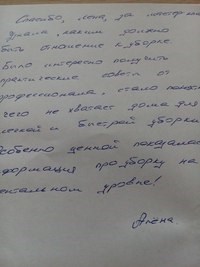 Спасибо, Лена, за мастер кла
узнала каким должно
быть отношение к уборке.
Было интересно получить
практические советы от
рофессионала, стало понят
чего не хватает дома для
легкой и быстрой уборки
Особенно ценной показалас
формация про уборку на
ентальном уровне!
Алена.